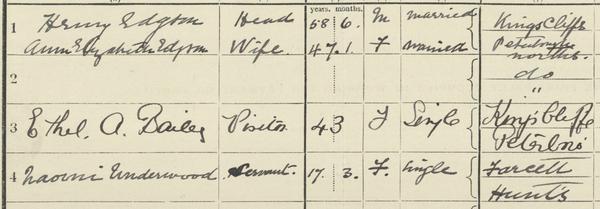 years. months.
1 Henry Edgson Head 58 6. M married Kings Cliffe
Ann Elizabeth Edgson Wife 47. 1. F married Peterborough
northts.
2 do
"
3 Ethel. A. Bailey Visitor 43 F Single King's Cliffe
Peterboro'
4 Naomi Underwood. Servant. 17. 3. F. Single Farcett
Hunts